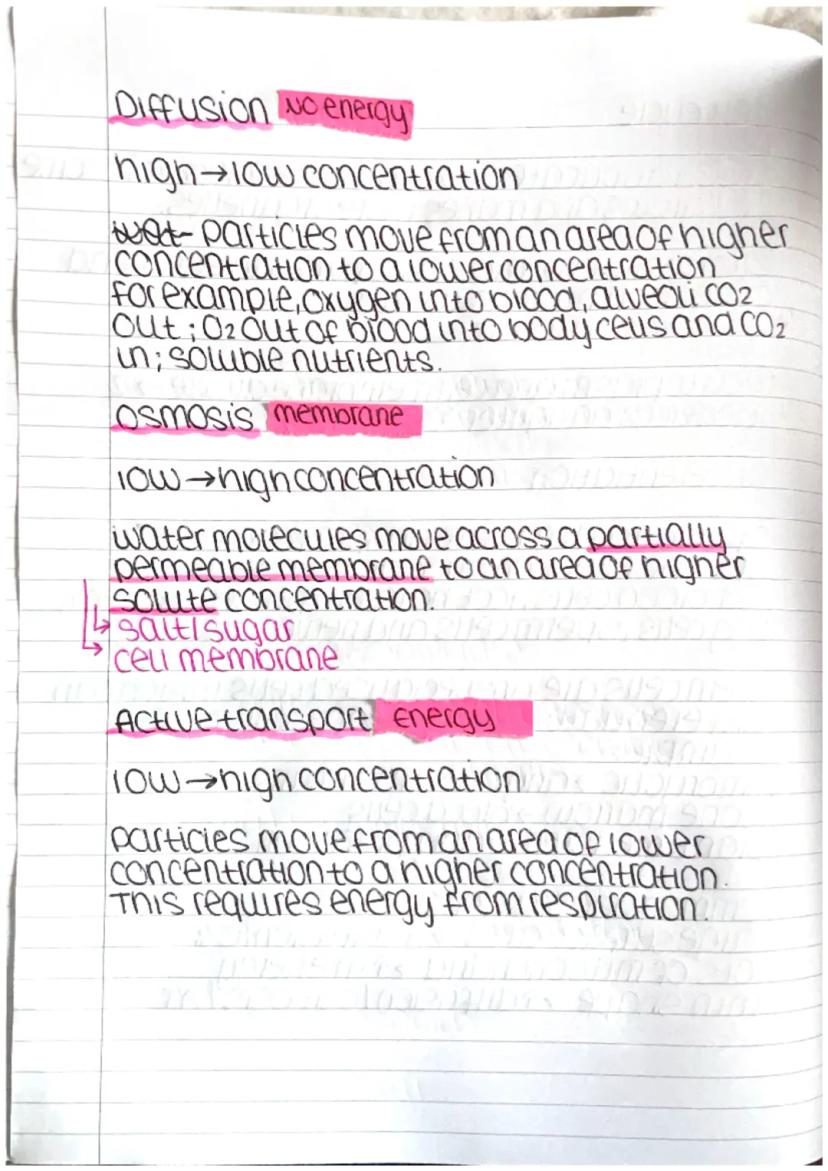 Diffusion No energy
high→low concentration
particles move from an area of higher
concentration to a lower concentration
for example, oxygen into blood, alveoli CO2
out; O2 out of blood into body cells and CO2
in; soluble nutrients.
Osmosis membrane
low→high concentration
water molecules move across a partially
permeable membrane to an area of higher
solute concentration.
salt/sugar
cell membrane
Active transport energy
low→high concentration
particles move from an area of lower
concentration to a higher concentration.
This requires energy from respiration.